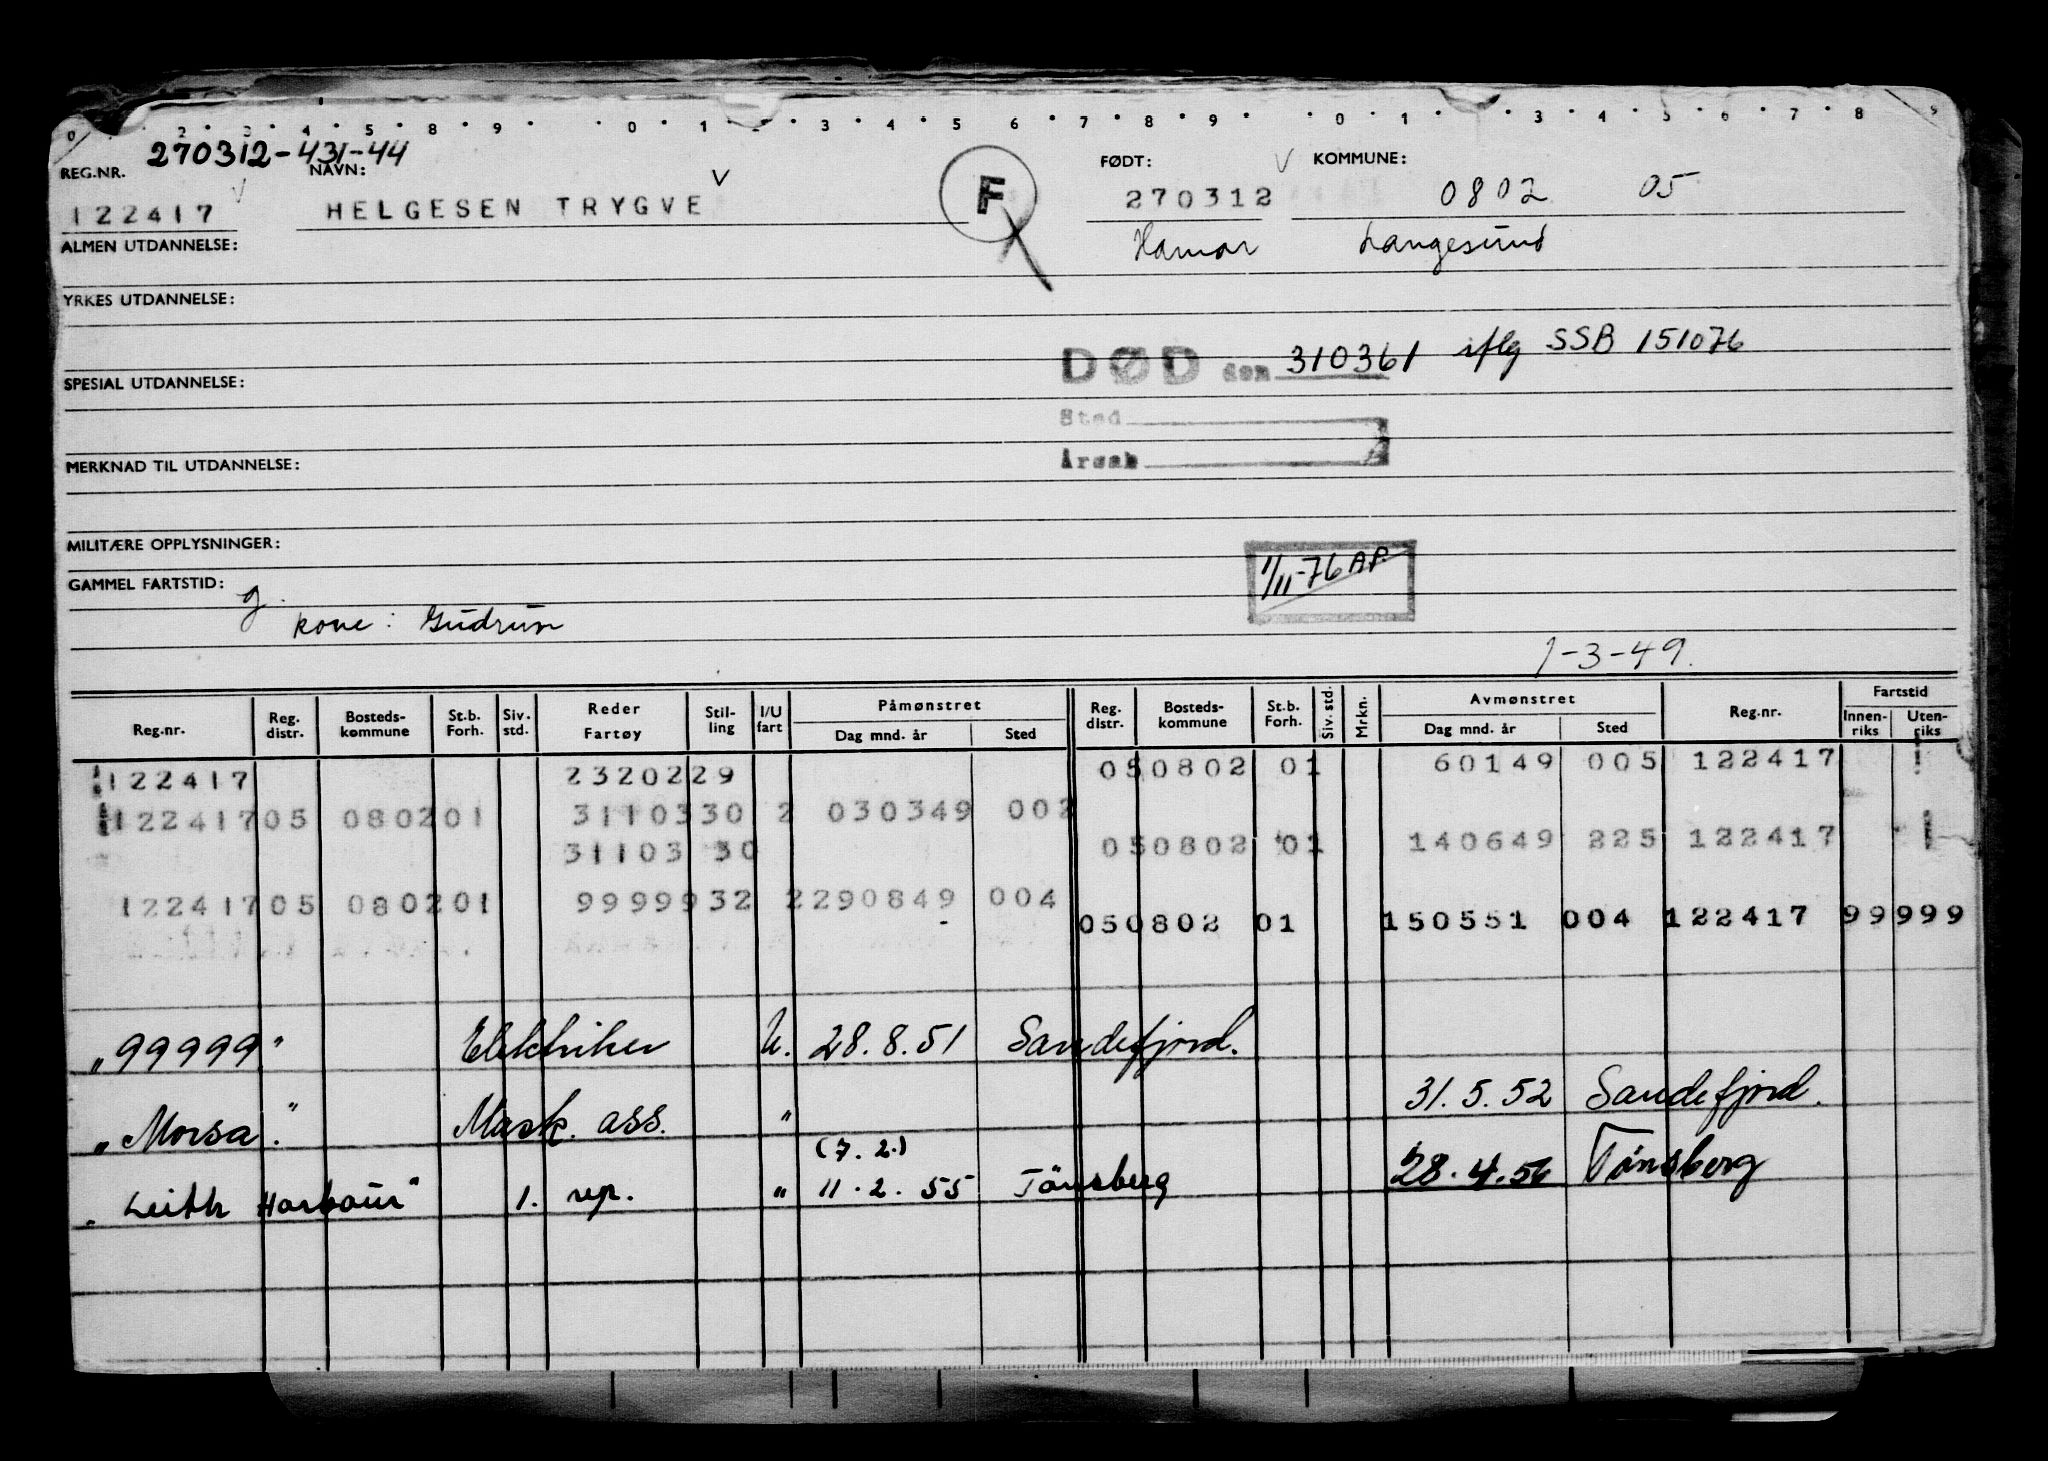 0 2 3 4 5 8 9 0 1 3 4 5 6 7 8 9 0 1 3 4 5 6 7 8 9
270312-431-44
REG.NR. NAVN: FØDT: KOMMUNE:
122417 HELGESEN TRYGVE F 270312 0802 05
ALMEN UTDANNELSE: Hamar Langesund
YRKES UTDANNELSE:
DØD den 310361 iflg SSB 151076
SPESIAL UTDANNELSE:
Sted
MERKNAD TIL UTDANNELSE: Årsak
MILITÆRE OPPLYSNINGER:
1/11-76 AP.
GAMMEL FARTSTID: g.
kone: Gudrun
1-3-49.
Reg.nr. Reg. distr. Bosteds-kommune St.b. Forh. Siv. std. Reder Fartøy Stil-ling I/U fart Påmønstret Dag mnd. år Sted Reg. distr. Bosteds-kommune St.b. Forh. Siv. std. Mrkn. Avmønstret Dag mnd. år Sted Reg.nr. Fartstid Innen-riks Uten-riks
122417 2320229 050802 01 60149 005 122417
122417 05 080201 3110330 2 030349 002
31103 30 050802 01 140649 225 122417
122417 05 080201 9999932 2290849 004
050802 01 150551 004 122417 99999
"99999" Elektriker U. 28.8.51 Sandefjord.
31.5.52 Sandefjord.
"Morsa". Mask. ass. "
(7.2.)
"Leith Harbour" 1. rep. " 11.2.55 Tönsberg 28.4.56 Tönsberg